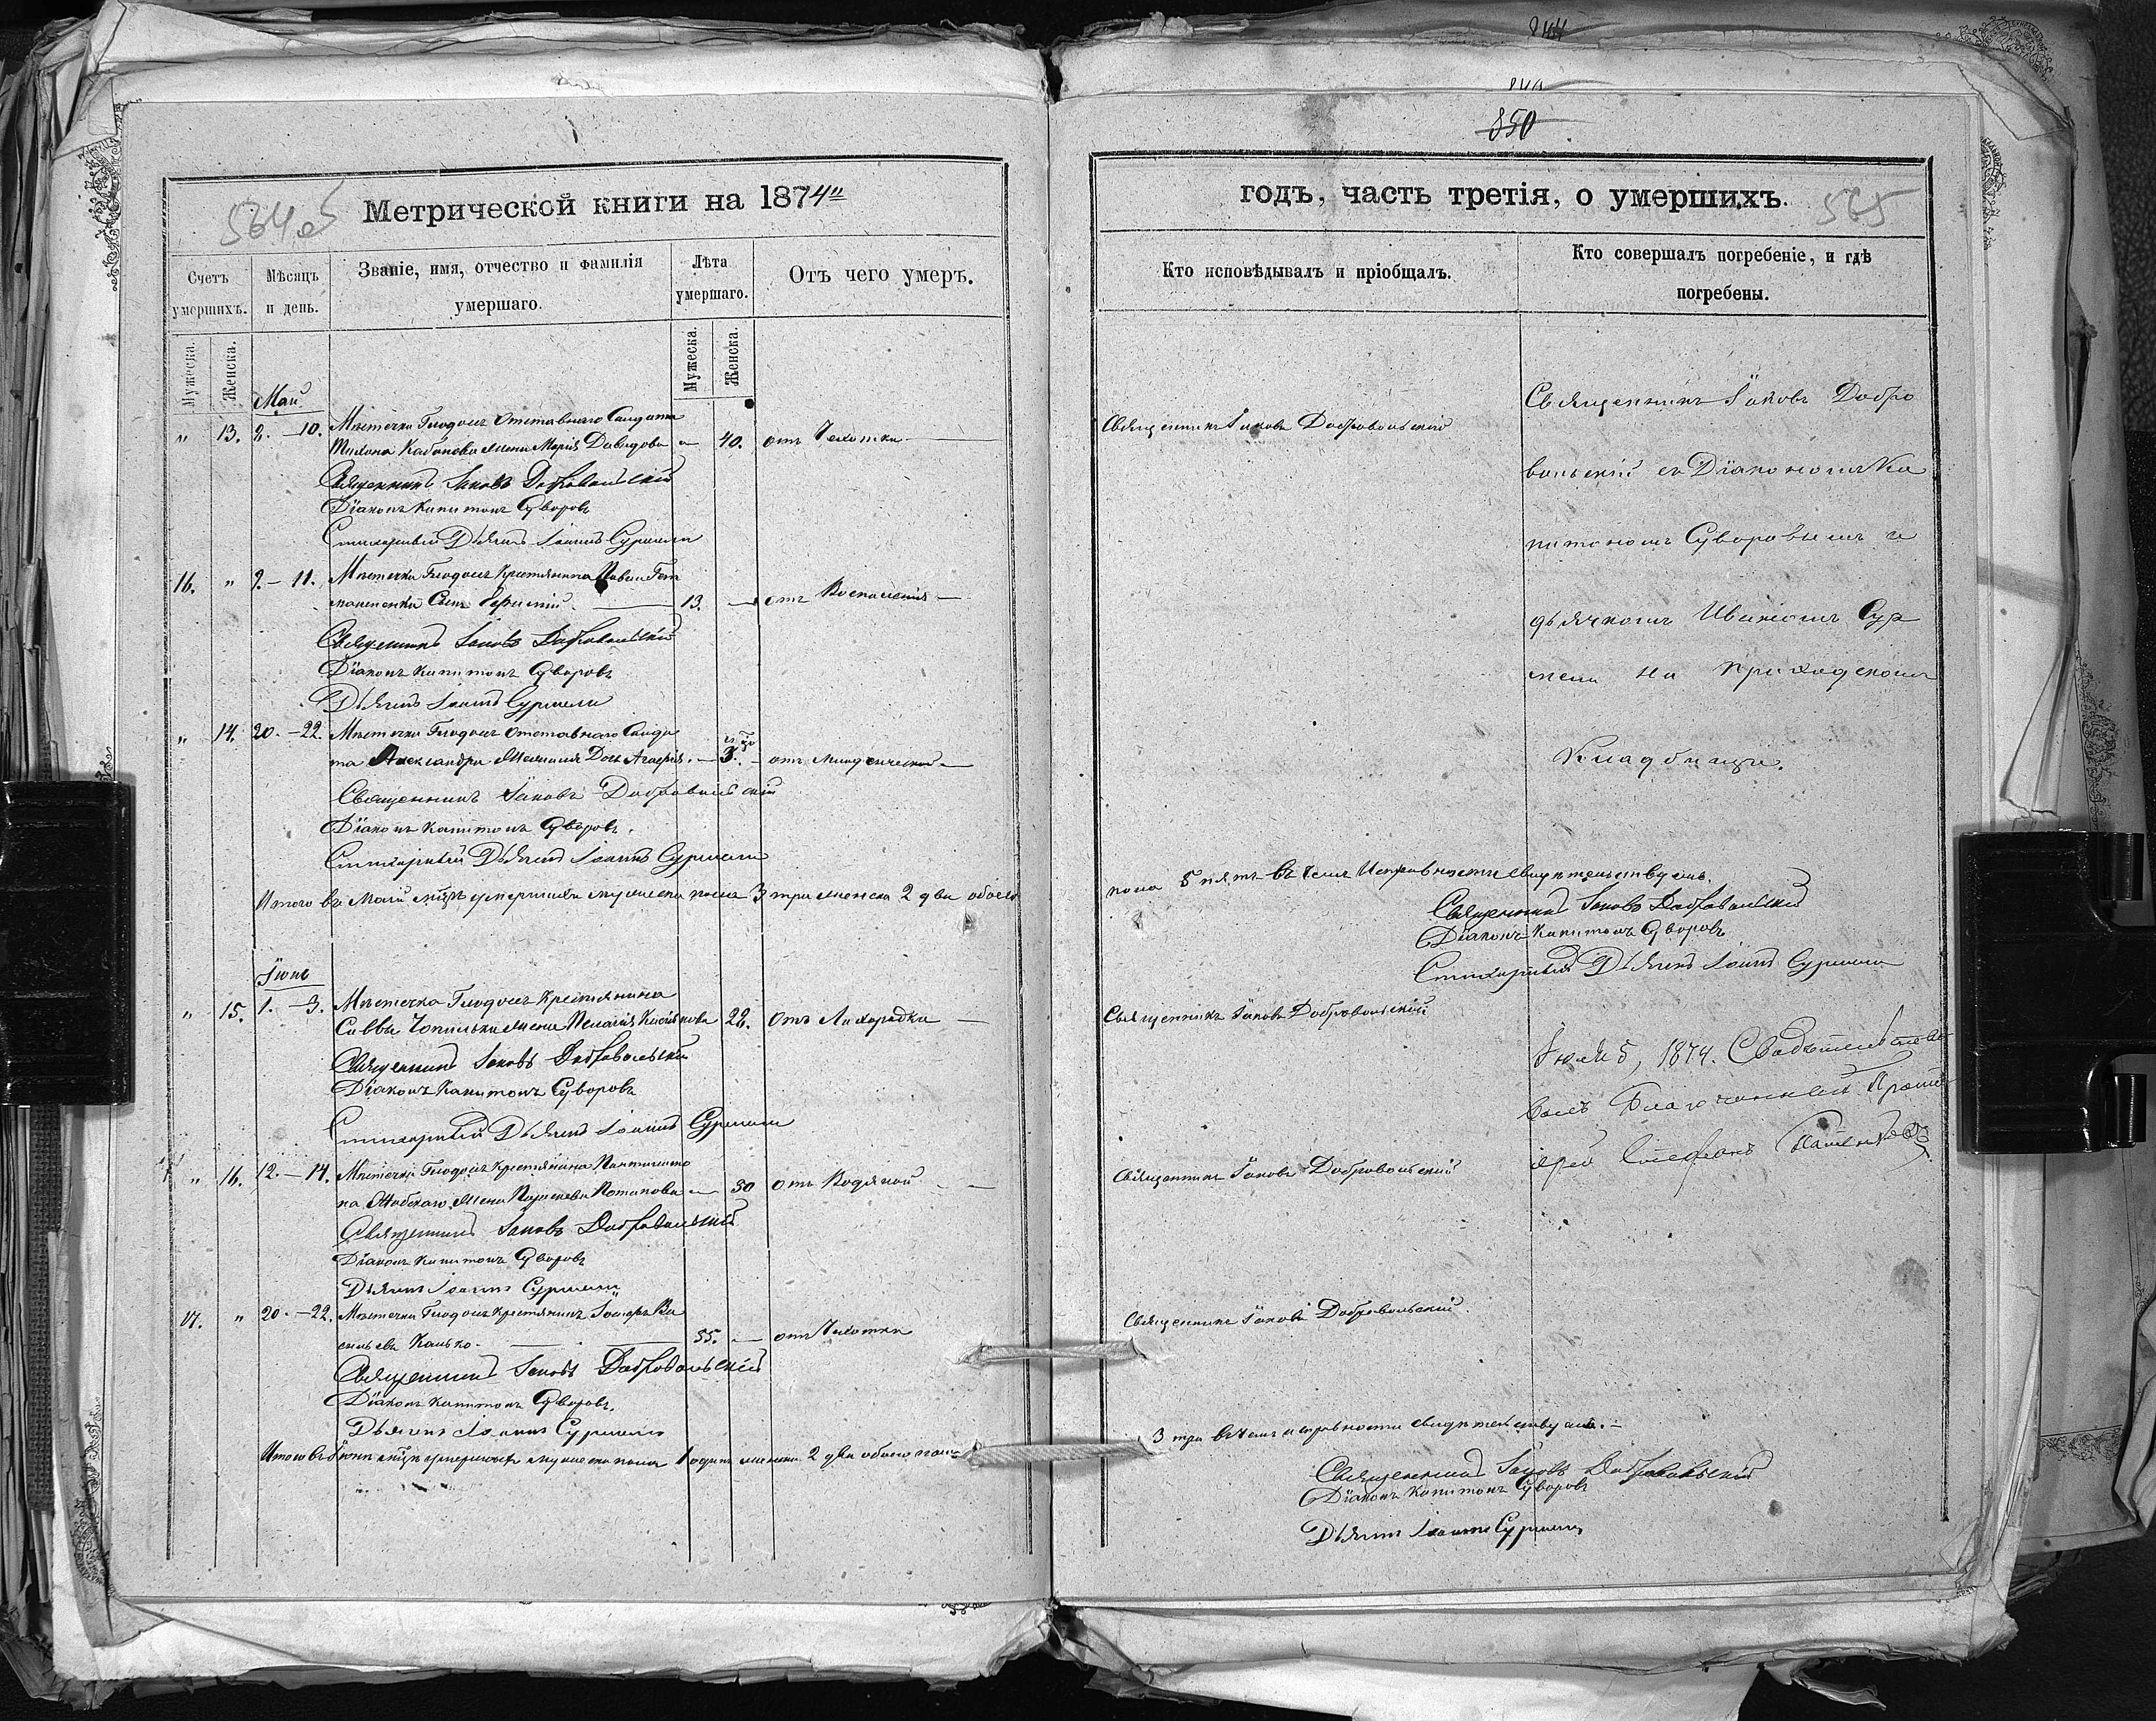 844
850
564 об
Метрической книги на 1874й
годъ, часть третія, о умершихъ.
565
Счетъ умершихъ.
Мѣсяцъ и день.
Званіе, имя, отчество и фамилія умершаго.
Лѣта умершаго.
Отъ чего умеръ.
Кто исповѣдывалъ и пріобщалъ.
Кто совершалъ погребеніе, и гдѣ погребены.
Мужеска.
Женска.
Мужеска.
Женска.
Май
„ 13. 2. — 10. Мѣстечка Глодосъ отставнаго Солдата
жена Марія Давидова — 40. отъ Чахотки
Священникъ Іаковъ Добровольскій
Священникъ Іаковъ Добровольскій
Діаконъ Капитонъ Суворовъ
Стихарный Дьячекъ Іоаннъ Сурмели
16. „ 9. — 11. Мѣстечка Глодосъ Крестьянина Павла
Сынъ 13. — отъ Воспаленія
Священникъ Іаковъ Добровольскій
Діаконъ Капитонъ Суворовъ
Дьячекъ Іоаннъ Сурмели
„ 14. 20. — 22. Мѣстечка Глодосъ отставнаго Солда
та Александра Дочь Агафія. — 3. отъ Младенческой
Священникъ Іаковъ Добровольскій
Діаконъ Капитонъ Суворовъ.
Стихарный Дьячекъ Іоаннъ Сурмели
Священникъ Іаковъ Добро
вольскій съ Діакономъ Ка
питономъ Суворовымъ и
дьячкомъ Иваномъ Сур
мели на приходскомъ
Кладбищѣ.
Итого въ Маѣ мцѣ умершихъ мужеска пола 3 три женска 2 два обоего
пола 5 пять въ чемъ исправности свидѣтельствуемъ.
Священникъ Іаковъ Добровольскій
Діаконъ Капитонъ Суворовъ
Стихарный Дьячекъ Іоаннъ Сурмели
Іюнь
„ 15. 1. — 3. Мѣстечка Глодосъ Крестьянина
Саввы жена Пелагія 22. отъ Лихорадки —
Священникъ Іаковъ Добровольскій
Священникъ Іаковъ Добровольскій
Діаконъ Капитонъ Суворовъ
Стихарный Дьячекъ Іоаннъ Сурмели
Іюля 5, 1874. Свидѣтельство
валъ Благочинный Протоі
ерей Стефанъ
„ 16. 12. — 14. Мѣстечка Глодосъ крестьянина Пантилимо
на жена Параскева Потапова — 30 отъ Водяной —
Священникъ Іаковъ Добровольскій
Священникъ Іаковъ Добровольскій
Діаконъ Капитонъ Суворовъ
Дьячекъ Іоаннъ Сурмели
17. „ 20. — 22. Мѣстечка Глодосъ крестьянинъ Іосифъ Ва
сильевъ 55. — отъ Чахотки
Священникъ Іаковъ Добровольскій.
Священникъ Іаковъ Добровольскій
Діаконъ Капитонъ Суворовъ.
Дьячекъ Іоаннъ Сурмели
Итого въ Іюнѣ мцѣ умершихъ мужеска пола 1 одинъ женска 2 два обоего пола
3 три въ чемъ исправности свидѣтельствуемъ. —
Священникъ Іаковъ Добровольскій
Діаконъ Капитонъ Суворовъ
Дьячекъ Іоаннъ Сурмели